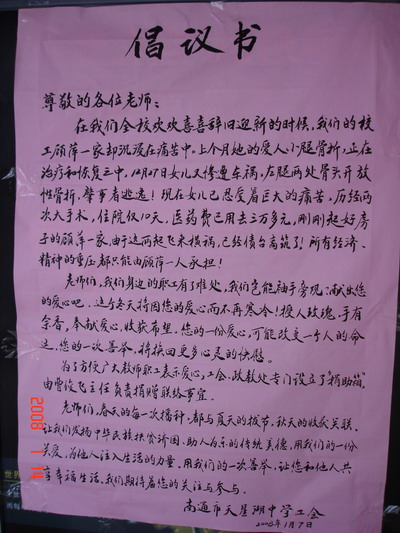 倡议书
尊敬的各位老师：
在我们全校欢欢喜喜辞旧迎新的时候，我们的校
工顾萍一家却沉浸在痛苦中。上个月她的爱人小腿骨折，正在
治疗和恢复之中，12月27日女儿又惨遭车祸，左腿两处骨头开放
性骨折，肇事者逃逸！现在女儿已忍受着巨大的痛苦，历经两
次大手术，住院仅10天，医药费已用去三万多元，刚刚起好房
子的顾萍一家，由于这两起飞来横祸，已经债台高筑了！所有经济、
精神的重压都只能由顾萍一人承担！
老师们，我们身边的职工有了难处，我们岂能袖手旁观，献出您
的爱心吧，这个冬天将因您的爱心而不再寒冷！授人玫瑰，手有
余香，奉献爱心，收获希望，您的一份爱心，可能改变一个人的命
运，您的一次善举，将换回更多心灵的快慰。
为了方便广大教师职工表示爱心，工会、政教处专门设立了"捐助箱"，
由曹俊飞主任负责捐赠联络事宜。
老师们，春天的每一次播种，都与夏天的拔节、秋天的收获关联，
让我们发扬中华民族扶贫济困、助人为乐的传统美德，用我们的一份
关爱，为他人注入生活的力量，用我们的一次善举，让您和他人共
享幸福生活。我们期待着您的关注与参与。
南通市天星湖中学工会
2008年1月7日
2008 1 14